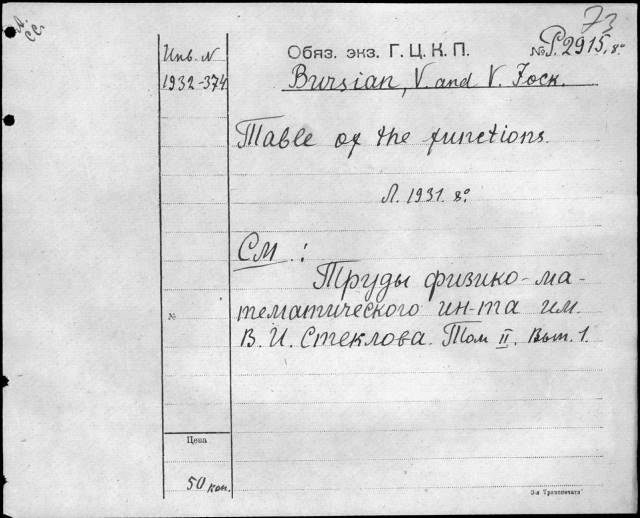 СС.
73
Инв. N
1932-374
Обяз. экз. Г. Ц. К. П.
№ P. 2915, 8°
Bursian, V. and V. Fock.
Table of the functions.
Л. 1931. 8°.
См.:
Труды физико-ма-
тематического ин-та им.
В. И. Стеклова. Том II. Вып. 1.
№
Цена
50 коп.